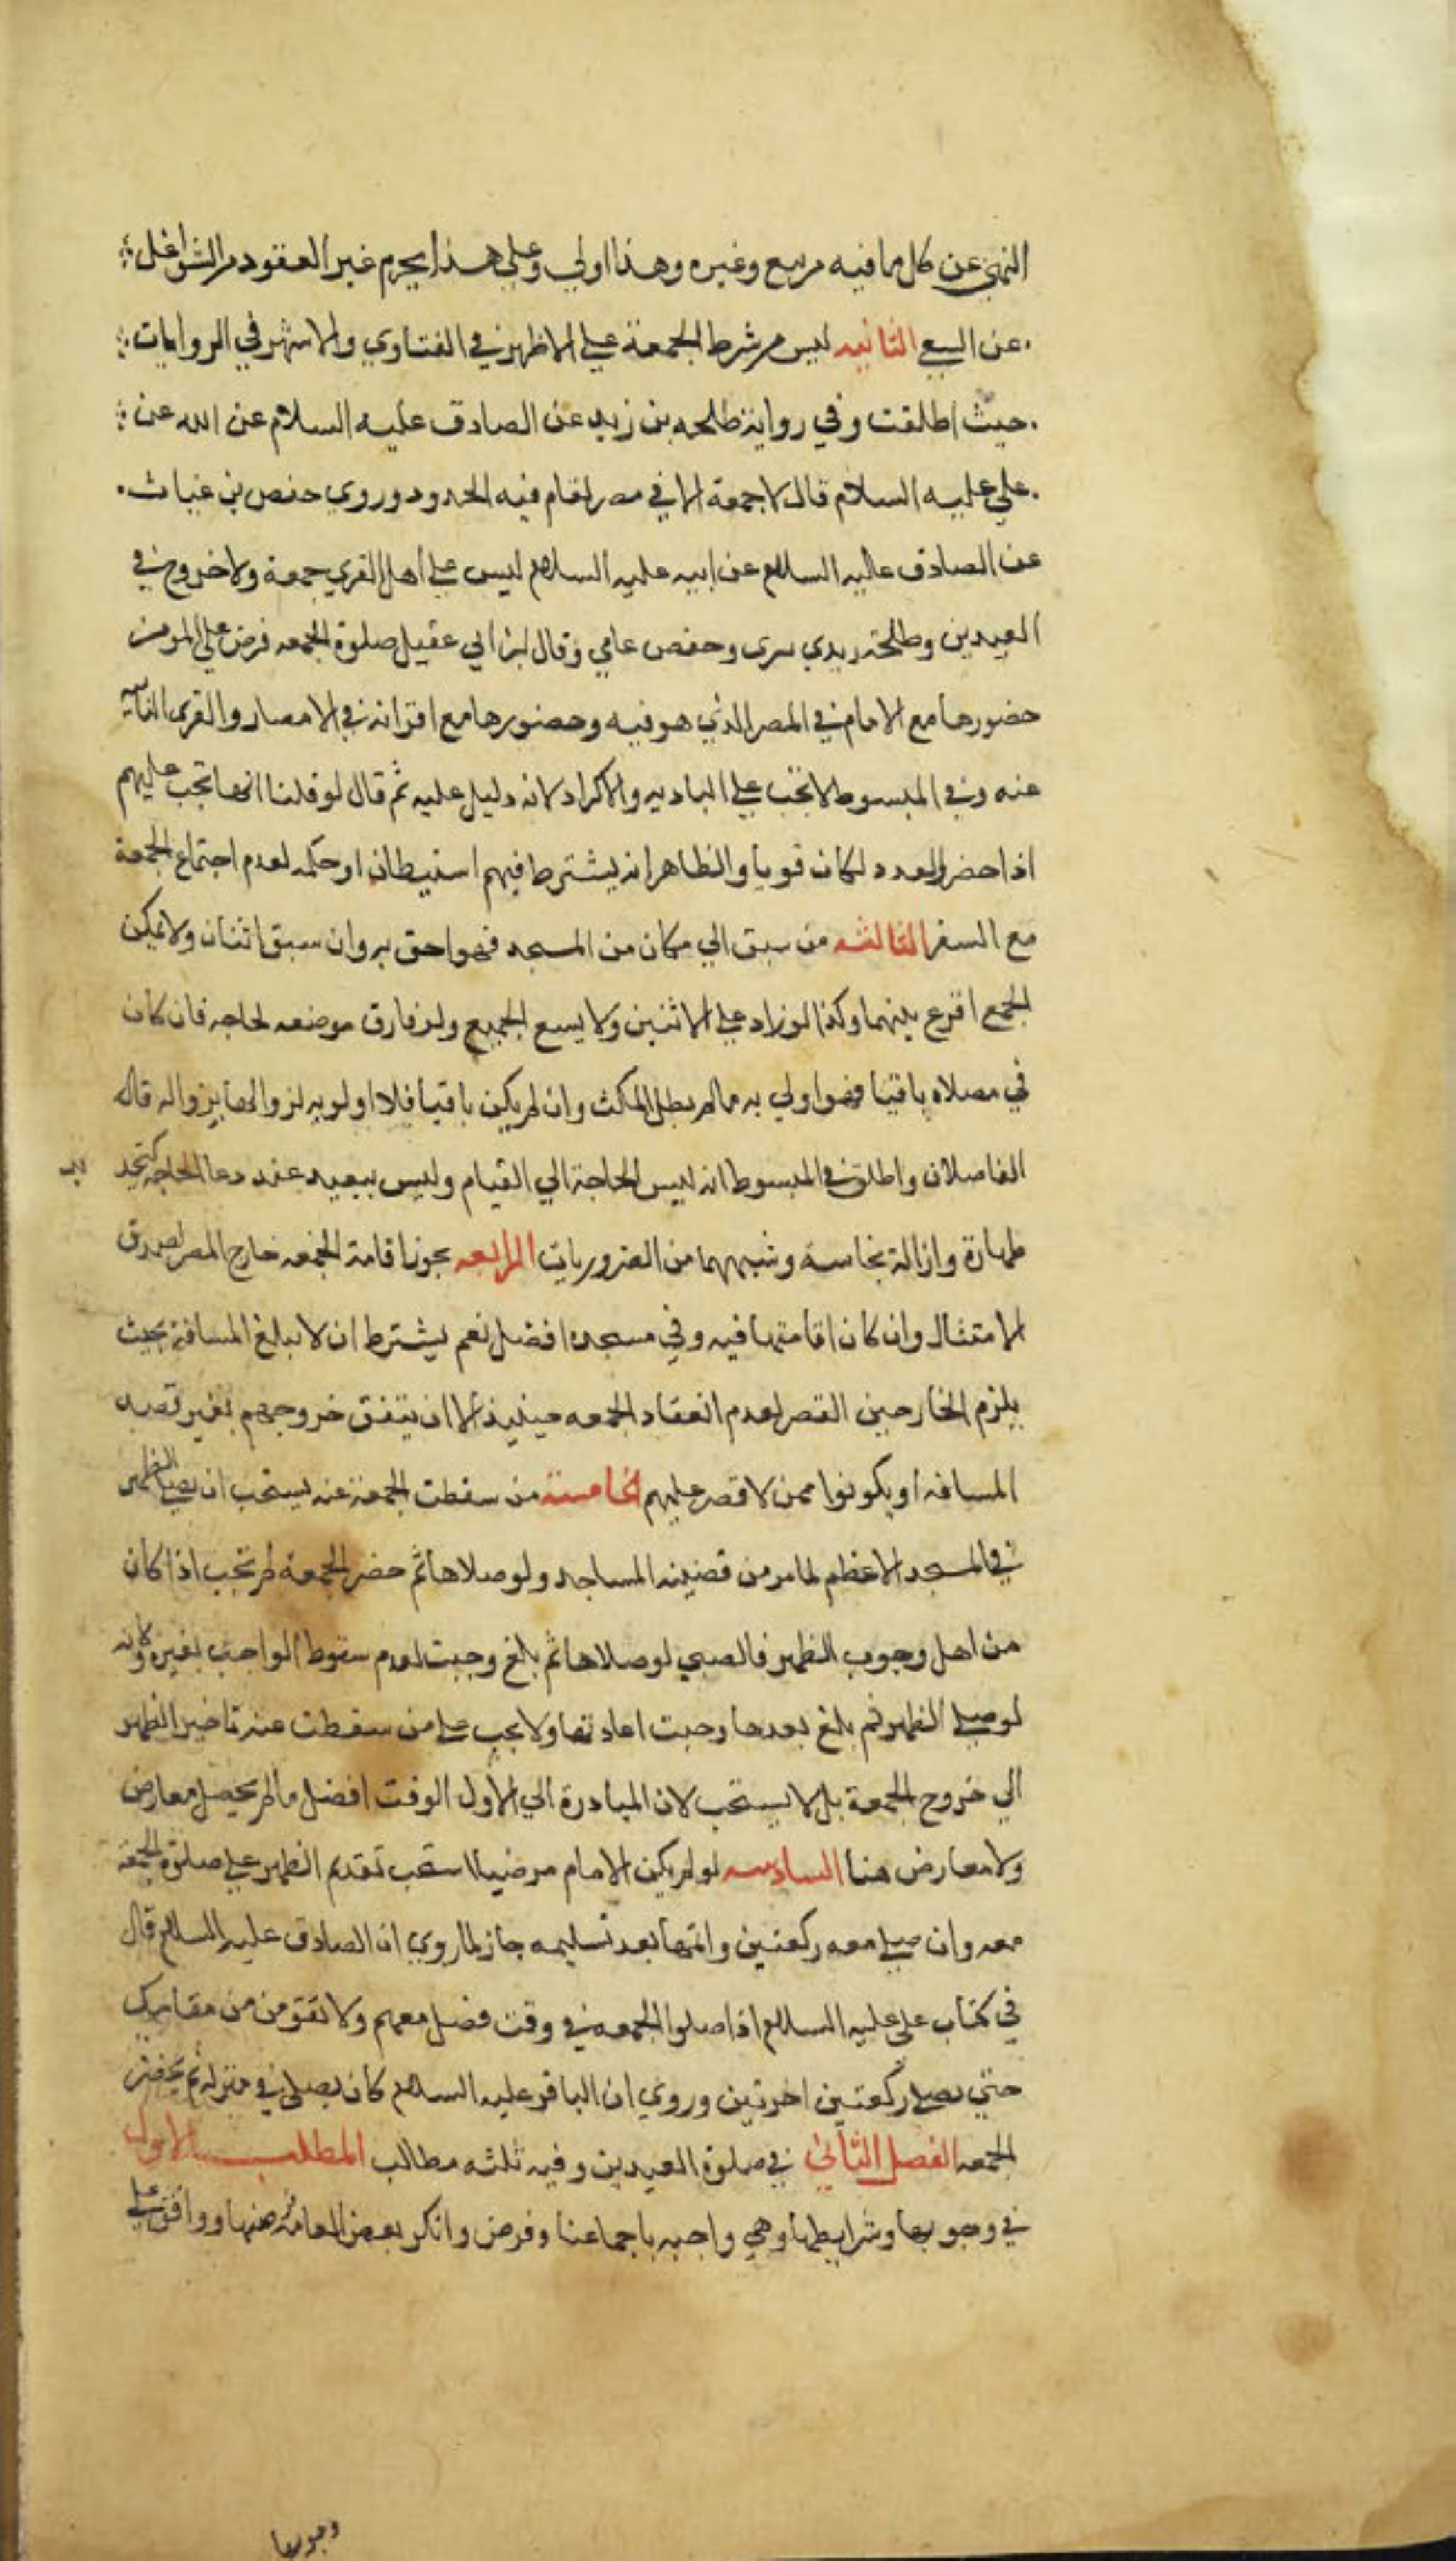 النهي عن كل ما فيه مربيع وغيره وهذا اولي وعلي هذا يحرم غير العقود مرالشواغل
عن السع الثانيه ليس مرشرط الجمعة علي الاظهر في الفتاوي والاشهر في الروايات
حيث اطلقت وفي رواية طلحه بن زيد عن الصادق عليه السلام عن ابيه عن
علي عليه السلام قال لا جمعة الا في مصر تقام فيه الحدود وروي حفص بن غياث
عن الصادق عليه السلام عن ابيه عليه السلام ليس علي اهل القري جمعة ولا خروج في
العيدين وطلحة زيدي بتري وحفص عامي وقال ابن ابي عقيل صلوة الجمعه فرض علي المومنين
حضورها مع الامام في المصر الذي هو فيه وحضورها مع امرائه في الامصار والقري النائية
عنه وفي المبسوط لا تجب علي الباديه والاكراد لانه دليل عليه ثم قال لو قلنا انها تجب عليهم
اذا حضر العدد لكان قويا والظاهر انه يشترط فيهم استيطان او حكمه لعدم اجتماع الجمعة
مع السفر الثالثه من سبق الي مكان من المسجد فهو احق به وان سبق اثنان ولا يمكن
الجمع اقرع بينهما وكذا لو زاد علي الاثنين ولا يسع الجميع ولو فارق موضعه لحاجه فان كان
في مصلاه باقيا فهو اولي به مالم يطل المكث وان لم يكن باقيا فلا اولويه لزوالها بزواله قاله
الفاضلان واطلق في المبسوط انه ليس الحاجة الي القيام وليس ببعيد عند دعا الحاجه كتجديد
طهارة وازالة نجاسة وشبههما من الضروريات الرابعه يجوز اقامة الجمعه خارج المصر لصدق
الامتثال وان كان اقامتها فيه وفي مسجده افضل نعم يشترط ان لا يبلغ المسافة بحيث
يلزم الخارجين القصر لعدم انعقاد الجمعه حينيذ الا ان يتفق خروجهم بغير قصد
المسافه او يكونوا ممن لا قصر عليهم الخامسة من سقطت الجمعة عنه يستحب ان يصلي الظهر
في المسجد الاعظم لما مر من فضيلة المساجد ولو صلاها ثم حضر الجمعة لم تجب اذا كان
من اهل وجوب الظهر فالصبي لو صلاها ثم بلغ وجبت لعدم سقوط الواجب بغيره كما انه
لو صلي الظهر ثم بلغ بعدها وجبت اعادتها ولا يجب علي من سقطت عنه تاخير الظهر
الي خروج الجمعة بل لا يستحب لان المبادرة الي الاول الوقت افضل مالم يحصل معارض
ولا معارض هنا السادسه لو لم يكن الامام مرضيا استحب تقديم الظهر علي صلوة الجمعة
معه وان صلي معه ركعتين واتمها بعد تسليمه جاز لما روي ان الصادق عليه السلام قال
في كتاب علي عليه السلام اذا صلوا الجمعه في وقت فصل معهم ولا تقومن من مقامك
حتي تصلي ركعتين اخرتين وروي ان الباقر عليه السلام كان يصلي في منزله ثم يحضر
الجمعه الفصل الثاني في صلوة العيدين وفيه ثلثه مطالب المطلب الاول
في وجوبها وشرايطها وهي واجبه باجماعنا وفرض وانكر بعض العامة فرضها ووافق علي
وجوبها